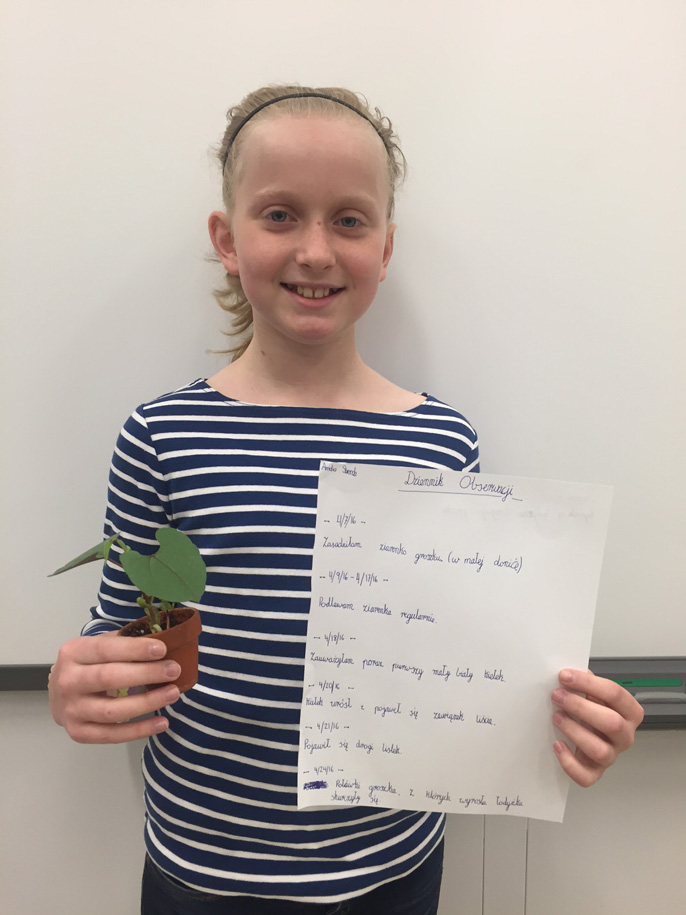 Dziennik Obserwacji
-- 4/7/16 --
Zasadziłam ziarnka groszku (w małej donicę)
-- 4/9/16 - 4/17/16 --
Podlewam ziarnka regularnie.
-- 4/18/16 --
Zauważyłam poraz pierwszy mały biały kiełek.
-- 4/20/16
Kiełek urósł i pojawił się zawiązek liścia.
-- 4/21/16 --
Pojawił się drogi listek.
-- 4/24/16 --
Połówki groszku, z których wyrosła łodyżka
skurczyły się.